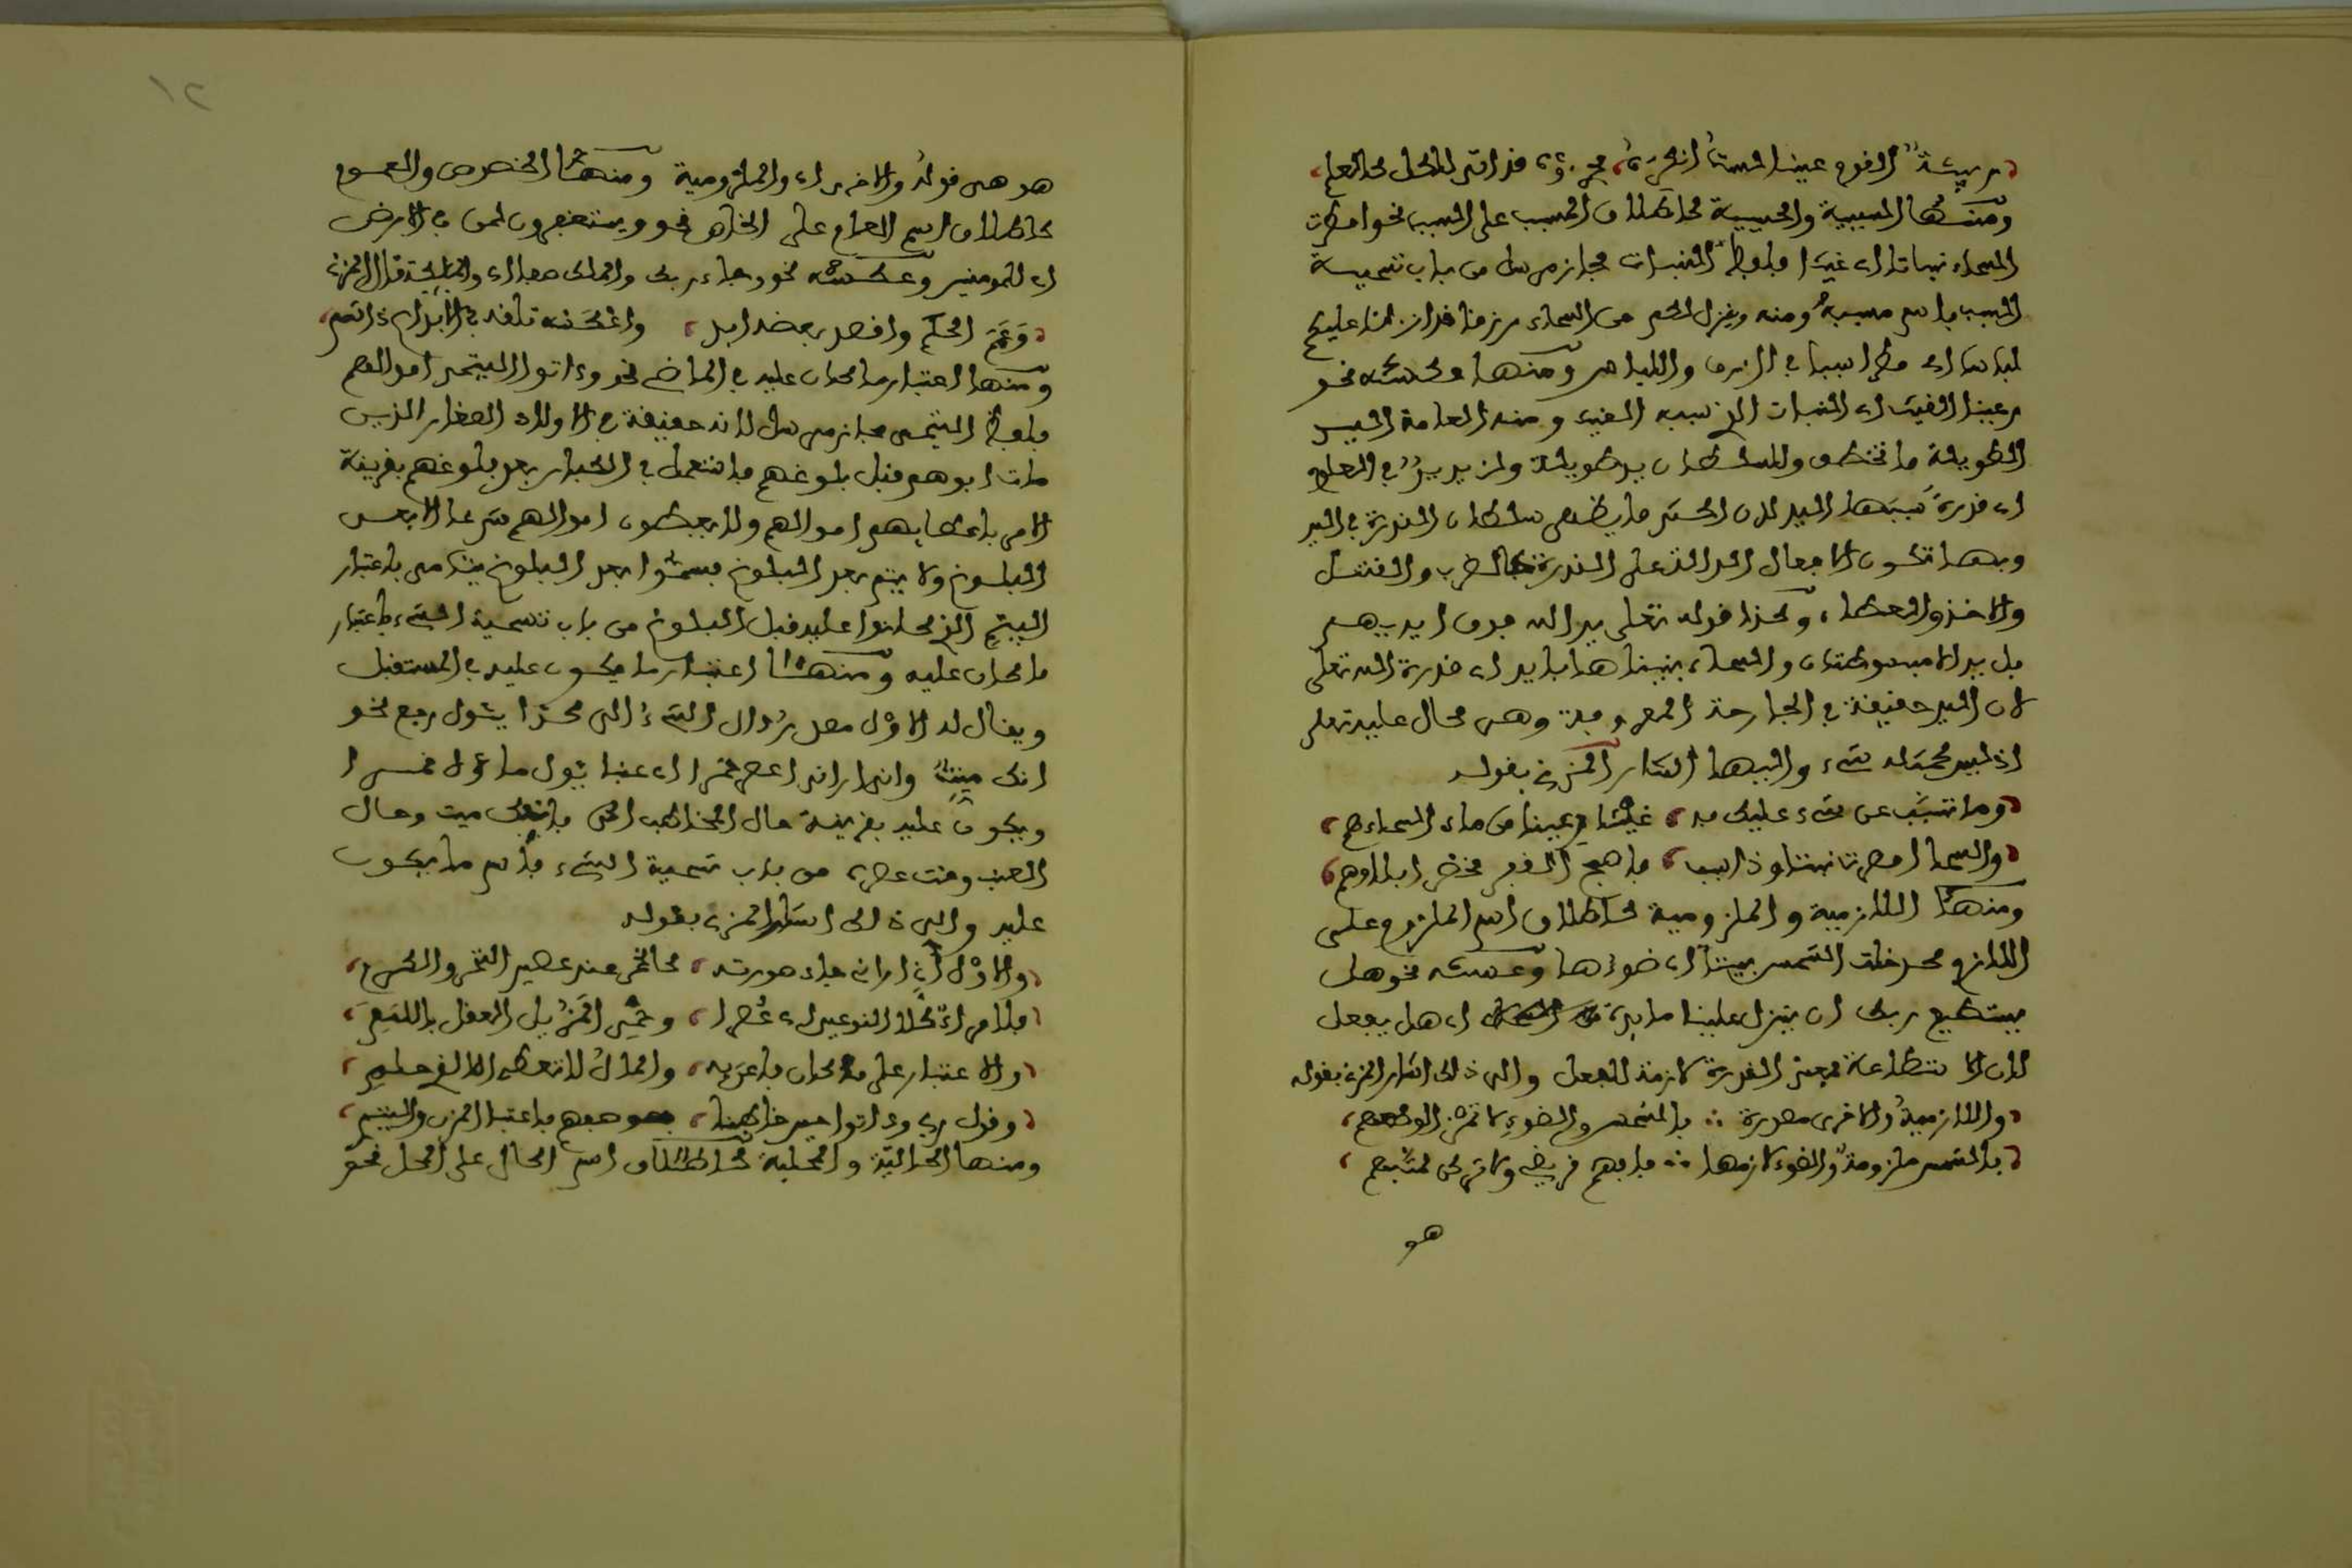 ربيئة القوم عينا لست أنكره، جزؤه قد أتى للكل كالعلم،
ومنها السببية والمسببية كإطلاق المسبب على السبب نحو أمطرت
السماء نباتا أي غيثا فلفظ النبات مجاز مرسل من باب تسمية
السبب باسم مسببه ومنه وينزل لكم من السماء رزقا قد أنزلنا عليكم
لباسا أي مطرا سببا في الرزق واللباس ومنها عكسه نحو
رعينا الغيث أي النبات الذي سببه الغيث ومنه العامة
الطويلة ما تخطف وللسلطان يد طويلة ولزيد يد في العلم
أي قدرة سببها اليد لأن أكثر ما يظهر سلطان القدرة في اليد
وبها تكون الأفعال الدالة على القدرة كالضرب والقتل
والأخذ والعطاء، وكذا قوله تعلى يد الله فوق أيديهم
بل يداه مبسوطتان والسماء بنيناها بأيد أي قدرة الله تعلى
لأن اليد حقيقة في الجارحة المعروفة وهي محال عليه تعلى
إذ ليس كمثله شيء وإليها أشار المزي بقوله
وما تسبب عن شيء عليك به، غيثا رعينا من ماء السماء
والسما أمطرت نبتا وذا سبب، فافهم
ومنها اللازمية والملزومية كإطلاق اسم الملزوم على
اللازم كدخلت الشمس بيتنا أي ضوءها وعكسه نحو هل
يستطيع ربك أن ينزل علينا مائدة أي هل يفعل
لأن الاستطاعة بمعنى القدرة لازمة للفعل وإلى ذلك أشار المزي بقوله
واللازمية والأخرى مصدرة ∴ بالشمس والضوء
بالشمس ملزومة والضوء لازمها ∴ فافهم
هو
١٢
هو هي قوله والأخرى أي والملزومية ومنها الخصوص والعموم
كإطلاق اسم العام على الخاص نحو ويستغفرون لمن في الأرض
أي للمومنين وعكسه نحو وجاء ربك والملك صفا أي والملائكة قال المزي
وعمم الحكم واقصد بعض، واعكسه تلقه في
ومنها اعتبار ما كان عليه في الماضي نحو وءاتوا اليتمى أموالهم
فلفظ اليتمى مجاز مرسل لأنه حقيقة في الأولاد الصغار الذين
مات أبوهم قبل بلوغهم فاستعمل في الكبار بعد بلوغهم بقرينة
الأمر بإعطايهم أموالهم ولا يعطون أموالهم شرعا إلا بعد
البلوغ ولا يتم بعد البلوغ فسموا بعد البلوغ يتامى باعتبار
اليتم الذي كانوا عليه قبل البلوغ من باب تسمية الشيء باعتبار
ما كان عليه ومنها اعتبار ما يكون عليه في المستقبل
ويقال له الأول مصدر ءال الشيء إلى كذا يئول رجع نحو
إنك ميت وإني أراني أعصر خمرا أي عنبا يئول ماؤه خمرا
ويكون عليه بقرينة حال المخاطب الحي فإنك ميت وحال
العنب وقت عصره من باب تسمية الشيء باسم ما يكون
عليه وإلى ذلك أشار المزي بقوله
والأول إني أراني جاء صورته، كالخمر عند عصير التمر والكرم،
والاعتبار على ما كان فاعن به، والمال لا تعطه إلا لذي حلم،
وقول ربي وءاتوا حين خاطبنا،
ومنها الحالية والمحلية كإطلاق اسم الحال على المحل نحو